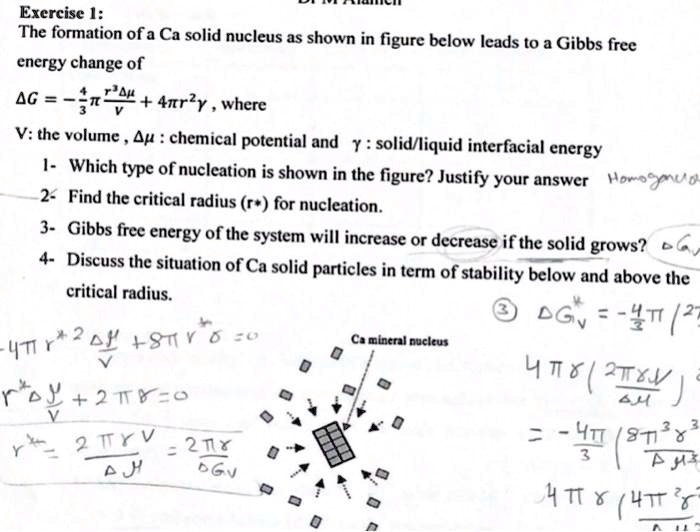 Exercise 1:
The formation of a Ca solid nucleus as shown in figure below leads to a Gibbs free
energy change of
ΔG = −4/3 π r³Δμ/V + 4πr²γ , where
V: the volume , Δμ : chemical potential and γ : solid/liquid interfacial energy
1- Which type of nucleation is shown in the figure? Justify your answer
2- Find the critical radius (r*) for nucleation.
3- Gibbs free energy of the system will increase or decrease if the solid grows?
4- Discuss the situation of Ca solid particles in term of stability below and above the
critical radius.
③ ΔG*v = −4/3 π
-4π r*² Δμ/V + 8π r* γ = 0
Ca mineral nucleus
4πγ ( 2πγV / Δμ )
r* Δμ/V + 2πγ = 0
= −4π/3 ( 8π³γ³ / Δμ³
r* = 2πγV / Δμ = 2πγ / ΔGv
4πγ ( 4π²γ²